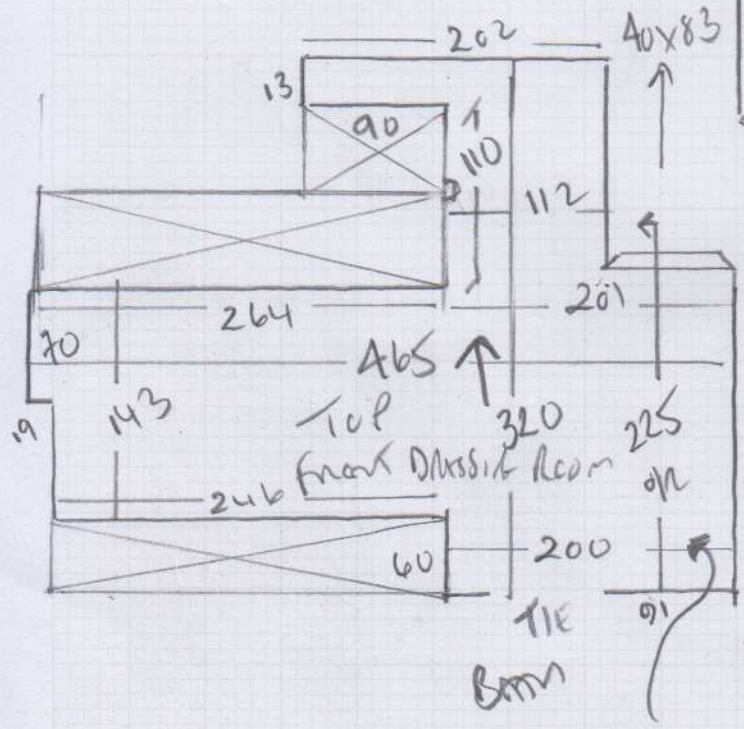 202
40x83
13
90
110
112
264
201
70
465
19
143
TOP
320
225
FRONT DRESSING ROOM
O/R
246
60
200
TIE
91
BEAM